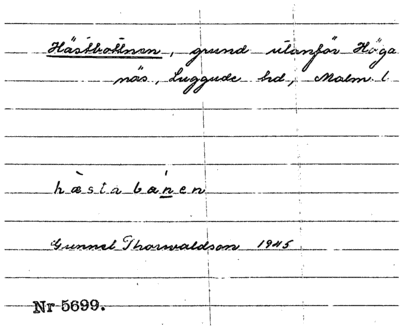 Hästbottnen, grund utanför Höga
näs, Luggude hd, Malm. l.
hàsta bánen
Gunnel Thorwaldson 1945
Nr 5699.